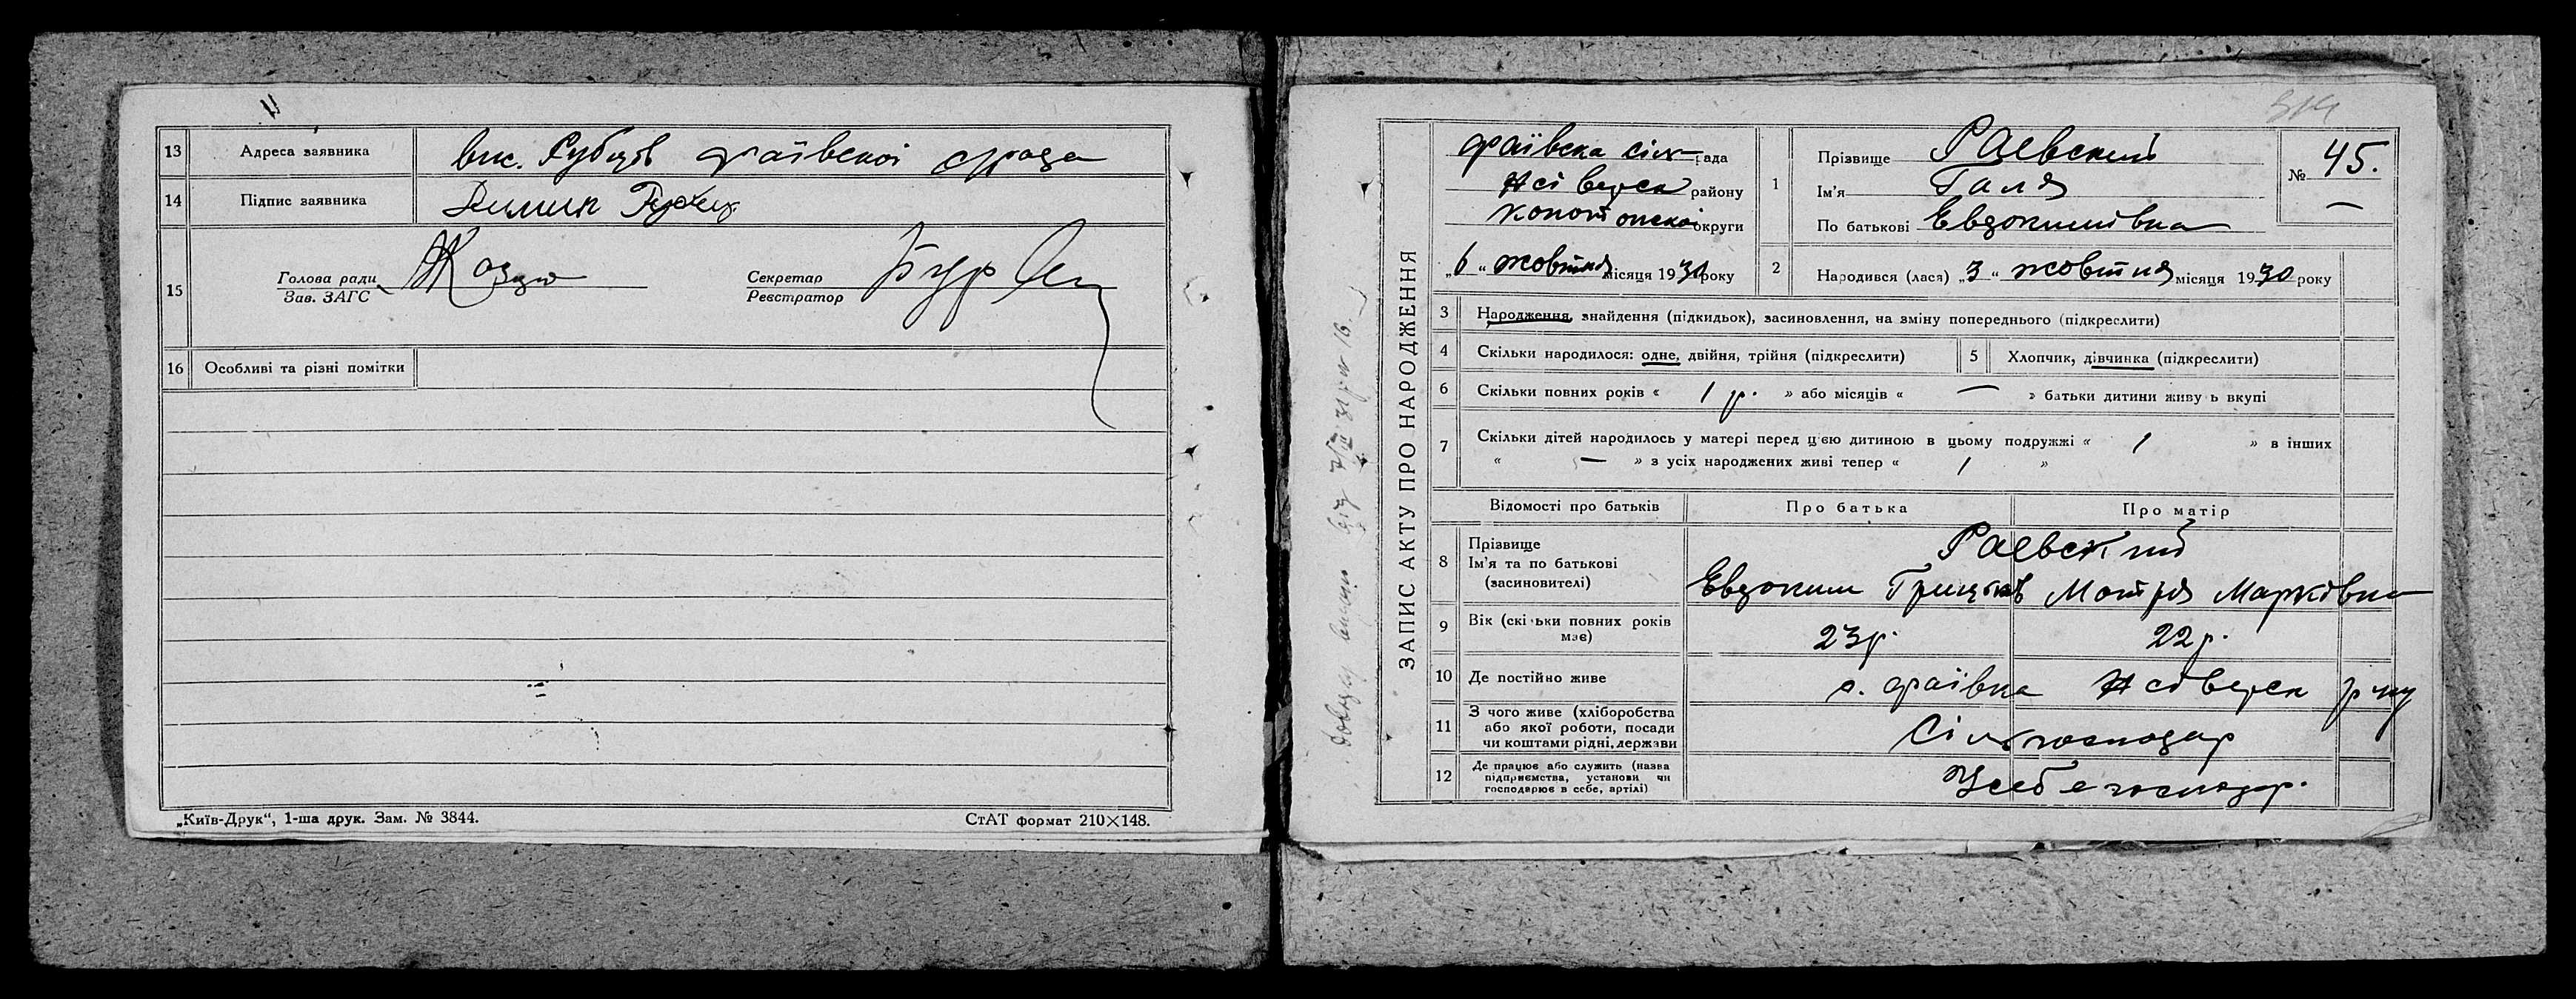 13 Адреса заявника вис. Рубцов Фаївскої с/рада
14 Підпис заявника
15
Голова ради
Зав. ЗАГС
Секретар
Реєстратор
16 Особливі та різні помітки
„Київ-Друк“, 1-ша друк. Зам. № 3844.
СтАТ формат 210×148.
314
ЗАПИС АКТУ ПРО НАРОДЖЕННЯ
Фаївска сіль рада
району
Конотопскої округи
„6“ жовтня місяця 1930 року
1 Прізвище Раевский
Ім'я Галя
По батькові Евдокимівна
№ 45.
2 Народився (лася) „3“ жовтня місяця 1930 року
3 Народження, знайдення (підкидьок), засиновлення, на зміну попереднього (підкреслити)
4 Скільки народилося: одне, двійня, трійня (підкреслити)
5 Хлопчик, дівчинка (підкреслити)
6 Скільки повних років « 1 р. » або місяців « — » батьки дитини живу ь вкупі
7 Скільки дітей народилось у матері перед цією дитиною в цьому подружжі « 1 » в інших
« — » з усіх народжених живі тепер « 1 »
Відомості про батьків Про батька Про матір
8 Прізвище
Ім'я та по батькові
(засиновителі)
Раевский
Евдоким Грицьків Мотря Марківна
9 Вік (скільки повних років
має)
23р. 22р.
10 Де постійно живе с. Фаівка
11 З чого живе (хліборобства
або якої роботи, посади
чи коштами рідні, держави
Сільгосподар
12 Де працює або служить (назва
підприємства, установи чи
господарює в себе, артілі)
Усебе господар.